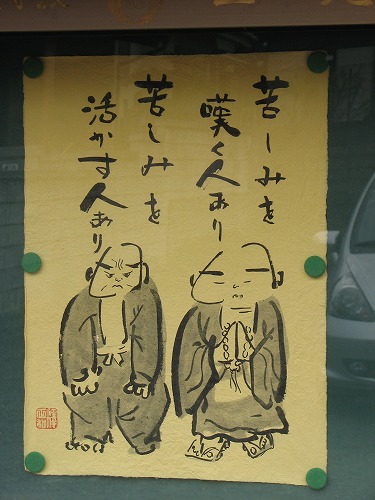 苦しみを
嘆く人あり
苦しみを
活かす人あり